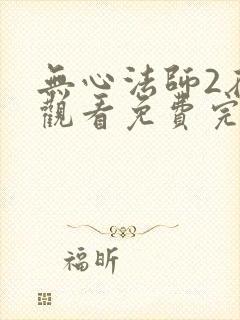 無心法師2
觀看免費完
福昕